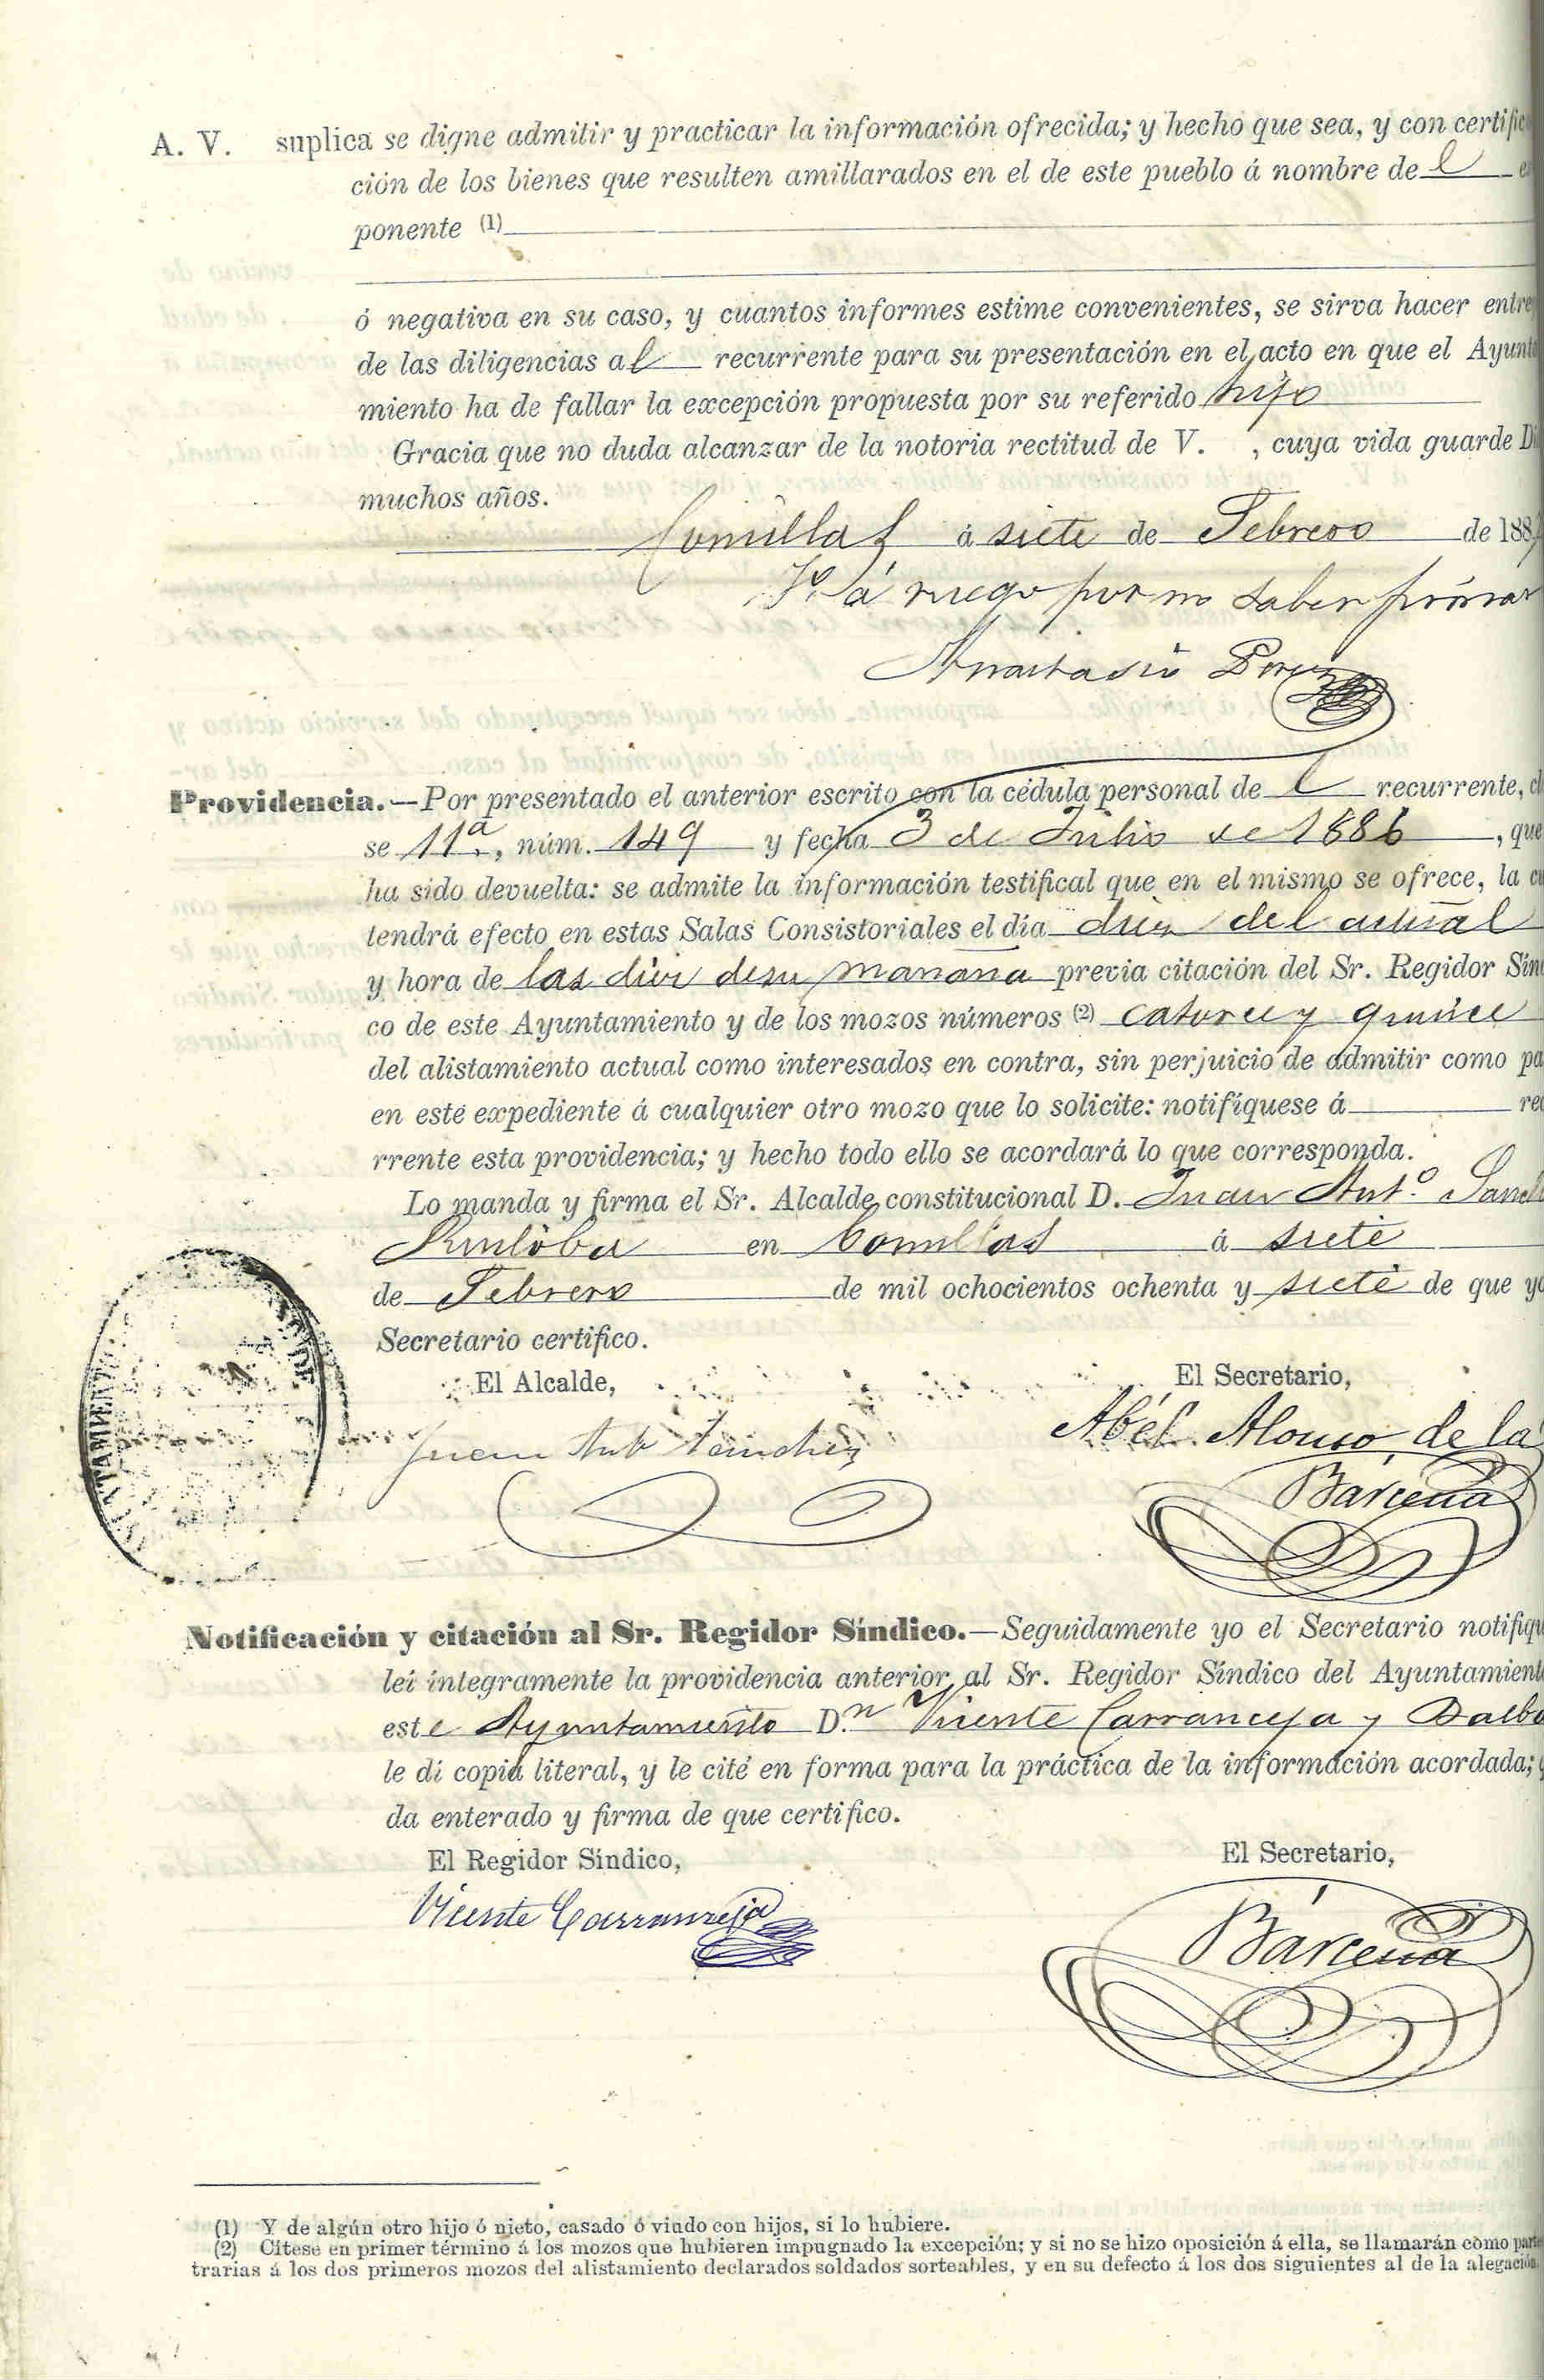 A. V. suplica se digne admitir y practicar la información ofrecida; y hecho que sea, y con certific
ción de los bienes que resulten amillarados en el de este pueblo á nombre de l e
ponente (1)
ó negativa en su caso, y cuantos informes estime convenientes, se sirva hacer entre
de las diligencias al recurrente para su presentación en el acto en que el Ayunta
miento ha de fallar la excepción propuesta por su referido hijo
Gracia que no duda alcanzar de la notoria rectitud de V. , cuya vida guarde Di
muchos años.
Comillas á siete de Febrero de 1887
á ruego por no saber firmar
Anastasio Perez
Providencia.—Por presentado el anterior escrito con la cédula personal de l recurrente, cla
se 11ª, núm. 149 y fecha 3 de Julio de 1886, que
ha sido devuelta: se admite la información testifical que en el mismo se ofrece, la cu
tendrá efecto en estas Salas Consistoriales el día diez del actual
y hora de las diez de su mañana previa citación del Sr. Regidor Síndi
co de este Ayuntamiento y de los mozos números (2) catorce y quince
del alistamiento actual como interesados en contra, sin perjuicio de admitir como pa
en este expediente á cualquier otro mozo que lo solicite: notifíquese á rec
rrente esta providencia; y hecho todo ello se acordará lo que corresponda.
Lo manda y firma el Sr. Alcalde constitucional D. Juan Antº Sanch
Ruiloba en Comillas á siete
de Febrero de mil ochocientos ochenta y siete de que yo
Secretario certifico.
El Alcalde, El Secretario,
Juan Antº Sanchez Abél Alonso de la
Bárcena
AYUNTAMIENTO
Notificación y citación al Sr. Regidor Síndico.—Seguidamente yo el Secretario notifiqu
leí íntegramente la providencia anterior al Sr. Regidor Síndico del Ayuntamient
este Ayuntamiento D.n Vicente Carranceja y Balbo
le dí copia literal, y le cité en forma para la práctica de la información acordada; q
da enterado y firma de que certifico.
El Regidor Síndico, El Secretario,
Vicente Carranceja Bárcena
(1) Y de algún otro hijo ó nieto, casado ó viudo con hijos, si lo hubiere.
(2) Cítese en primer término á los mozos que hubieren impugnado la excepción; y si no se hizo oposición á ella, se llamarán como parte
trarias á los dos primeros mozos del alistamiento declarados soldados sorteables, y en su defecto á los dos siguientes al de la alegación.